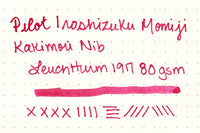 Pilot Iroshizuku Momiji
Kakimori Nib
Leuchtturm 1917 80gsm